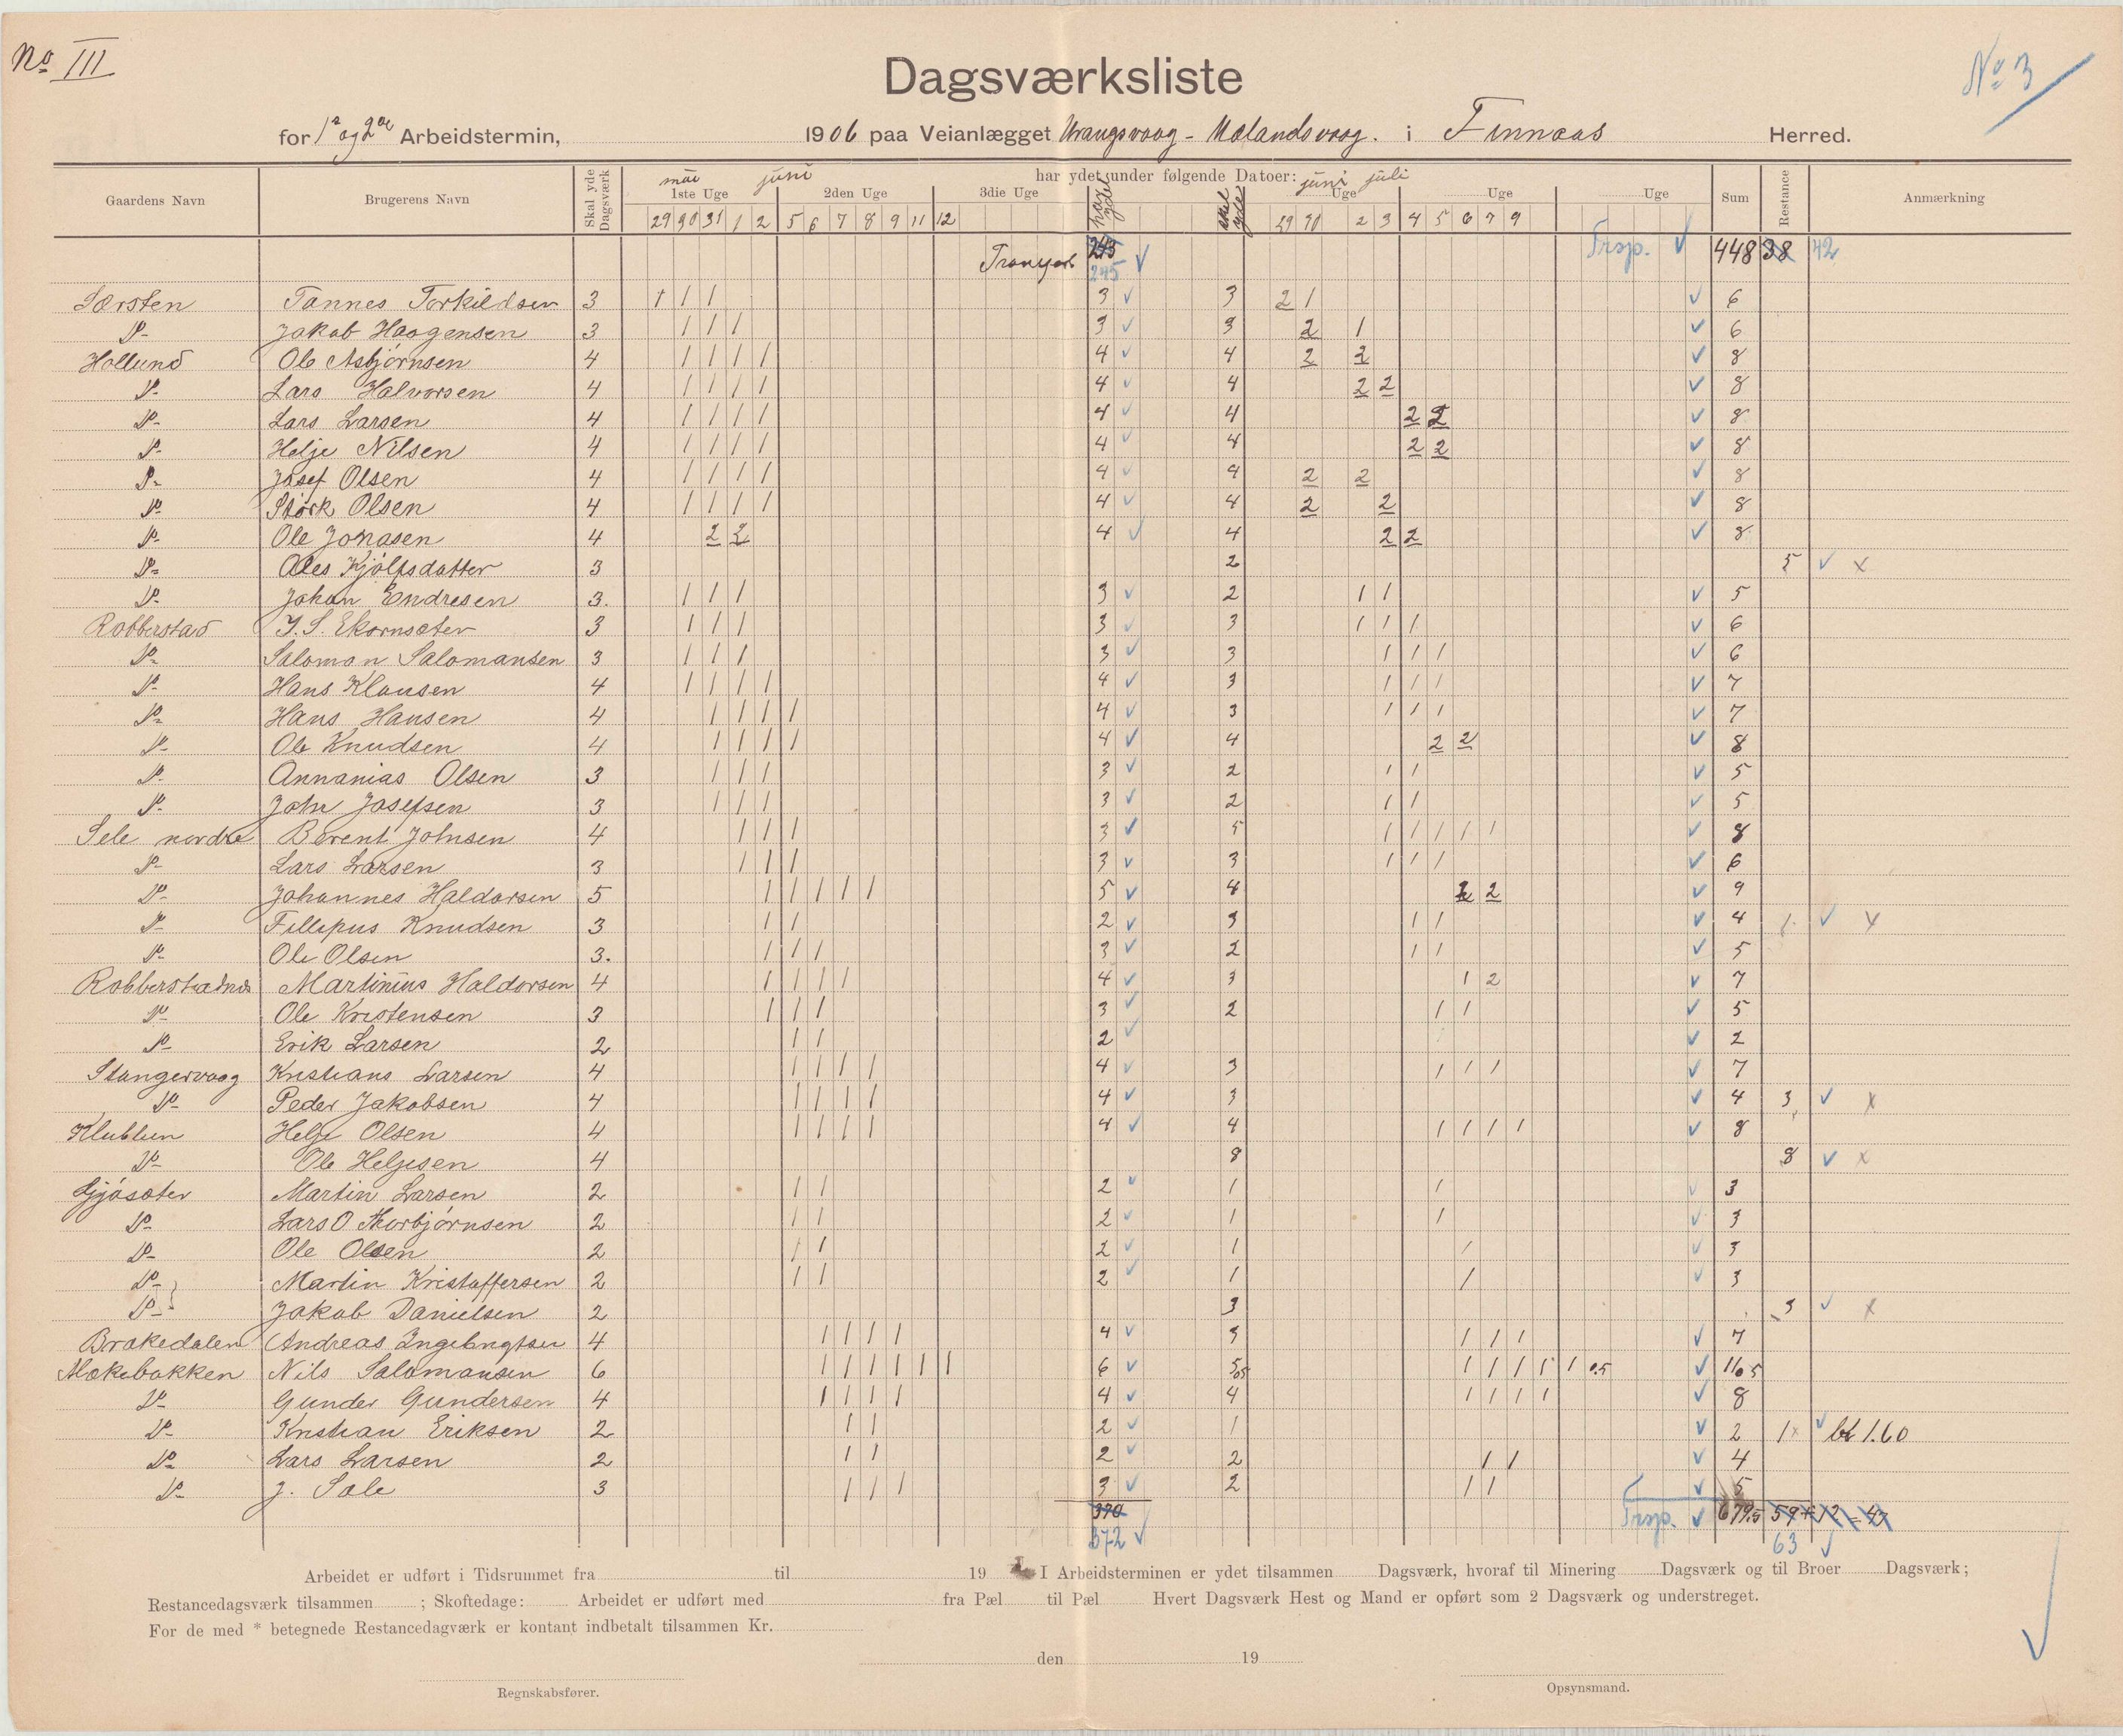 No III
No 3
Dagsværksliste
for 1ste og 2den Arbeidstermin, 1906 paa Veianlægget Vrangsvaag - Mælandsvaag. i Finnaas Herred.
Gaardens Navn Brugerens Navn Skal yde Dagsværk har ydet under følgende Datoer: Sum Restance Anmærkning
mai juni juni juli
1ste Uge 2den Uge 3die Uge har ydet skal yde Uge Uge Uge
29 30 31 1 2 5 6 7 8 9 11 12 29 30 2 3 4 5 6 7 9
Transport 243 245 Trsp. 448 38 42
Særsten Tønnes Torkildsen 3 1 1 1 3 3 2 1 6
Do- Jakob Haagensen 3 1 1 1 3 3 2 1 6
Hollund Ole Asbjørnsen 4 1 1 1 1 4 4 2 2 8
Do- Lars Halvorsen 4 1 1 1 1 4 4 2 2 8
Do- Lars Larsen 4 1 1 1 1 4 4 2 2 8
Do- Helje Nilsen 4 1 1 1 1 4 4 2 2 8
Do- Josef Olsen 4 1 1 1 1 4 4 2 2 8
Do- Størk Olsen 4 1 1 1 1 4 4 2 2 8
Do- Ole Jonasen 4 2 2 4 4 2 2 8
Do- Ales Kjølfsdatter 3 2 5 x
Do- Johan Endresen 3. 1 1 1 3 2 1 1 5
Robberstad J. S. Ekornsæter 3 1 1 1 3 3 1 1 1 6
Do- Salomon Salomonsen 3 1 1 1 3 3 1 1 1 6
Do- Hans Klausen 4 1 1 1 1 4 3 1 1 1 7
Do- Hans Hansen 4 1 1 1 1 4 3 1 1 1 7
Do- Ole Knudsen 4 1 1 1 1 4 4 2 2 8
Do- Annanias Olsen 3 1 1 1 3 2 1 1 5
Do- John Josefsen 3 1 1 1 3 2 1 1 5
Sele nordre Berent Johnsen 4 1 1 1 3 5 1 1 1 1 1 8
Do- Lars Larsen 3 1 1 1 3 3 1 1 1 6
Do- Johannes Haldorsen 5 1 1 1 1 1 5 4 2 2 9
Do- Fillipus Knudsen 3 1 1 2 3 1 1 4 1. x
Do- Ole Olsen 3. 1 1 1 3 2 1 1 5
Robberstadnes Martinius Haldorsen 4 1 1 1 1 4 3 1 2 7
Do- Ole Kristensen 3 1 1 1 3 2 1 1 5
Do- Erik Larsen 2 1 1 2 2
Stangervaag Kristians Larsen 4 1 1 1 1 4 3 1 1 1 7
Do- Peder Jakobsen 4 1 1 1 1 4 3 4 3 x
Klubben Helje Olsen 4 1 1 1 1 4 4 1 1 1 1 8
Do- Ole Heljesen 4 8 8 x
Gjøsæter Martin Larsen 2 1 1 2 1 1 3
Do- Lars O Thorbjørnsen 2 1 1 2 1 1 3
Do- Ole Olsen 2 1 1 2 1 1 3
Do- Martin Kristoffersen 2 1 1 2 1 1 3
Do- Jakob Danielsen 2 3 3 x
Brakedalen Andreas Ingebrigtsen 4 1 1 1 1 4 3 1 1 1 7
Mækebakken Nils Salomonsen 6 1 1 1 1 1 1 6 5,05 1 1 1 1 1 0.5 11,05
Do- Gunder Gundersen 4 1 1 1 1 4 4 1 1 1 1 8
Do- Kristian Eriksen 2 1 1 2 1 2 1 x bt 1.60
Do- Lars Larsen 2 1 1 2 2 1 1 4
Do- J. Sæle 3 1 1 1 3 2 1 1 5
370 Trsp. 679.5 59 + 12 = 47
372 63
Arbeidet er udført i Tidsrummet fra til 19 I Arbeidsterminen er ydet tilsammen Dagsværk, hvoraf til Minering Dagsværk og til Broer Dagsværk;
Restancedagsværk tilsammen ; Skoftedage: Arbeidet er udført med fra Pæl til Pæl Hvert Dagsværk Hest og Mand er opført som 2 Dagsværk og understreget.
For de med * betegnede Restancedagværk er kontant indbetalt tilsammen Kr.
den 19
Regnskabsfører. Opsynsmand.